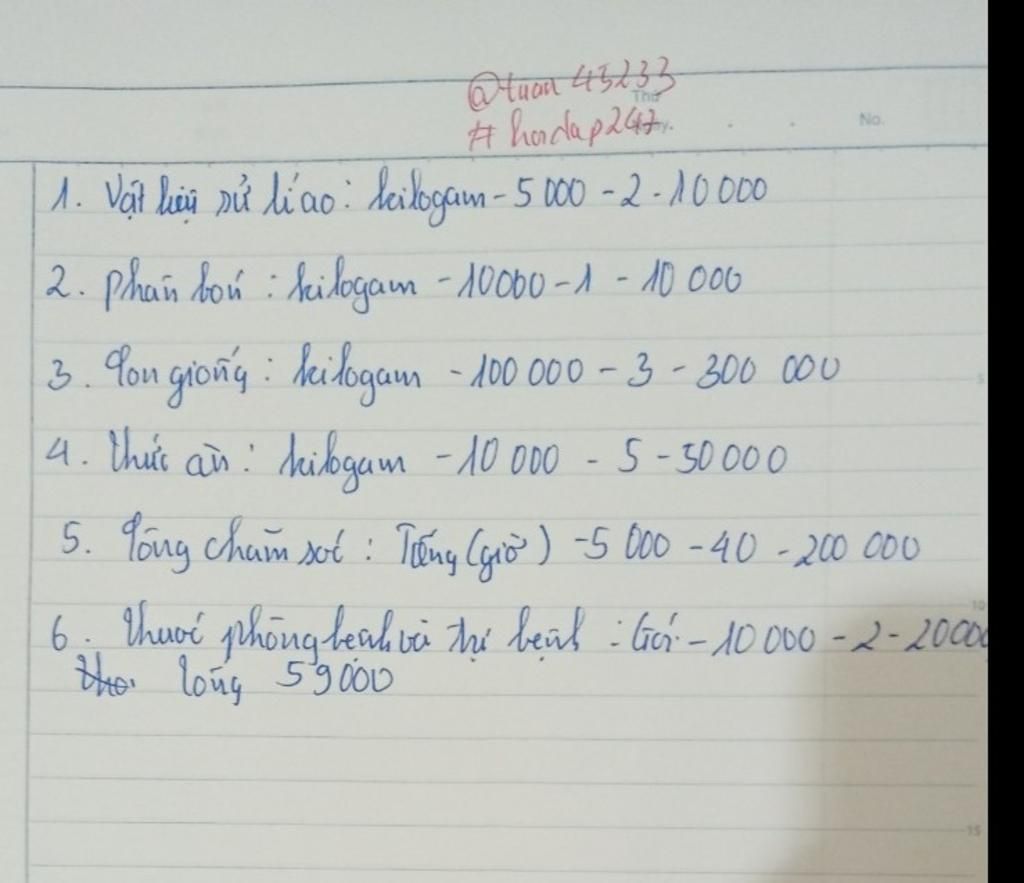 @tuan 45233
Thứ
# hoidap247.
No.
1. Vật liệu xử lí ao: kilogam - 5 000 - 2 - 10 000
2. phân bón : kilogam - 10000 - 1 - 10 000
3. Con giống : kilogam - 100 000 - 3 - 300 000
4. thức ăn : kilogam - 10 000 - 5 - 50 000
5. Công chăm sóc : Tiếng (giờ) - 5 000 - 40 - 200 000
6. thuốc phòng bệnh và trị bệnh : Gói - 10 000 - 2 - 20000
Cộng 59000
5
10
15